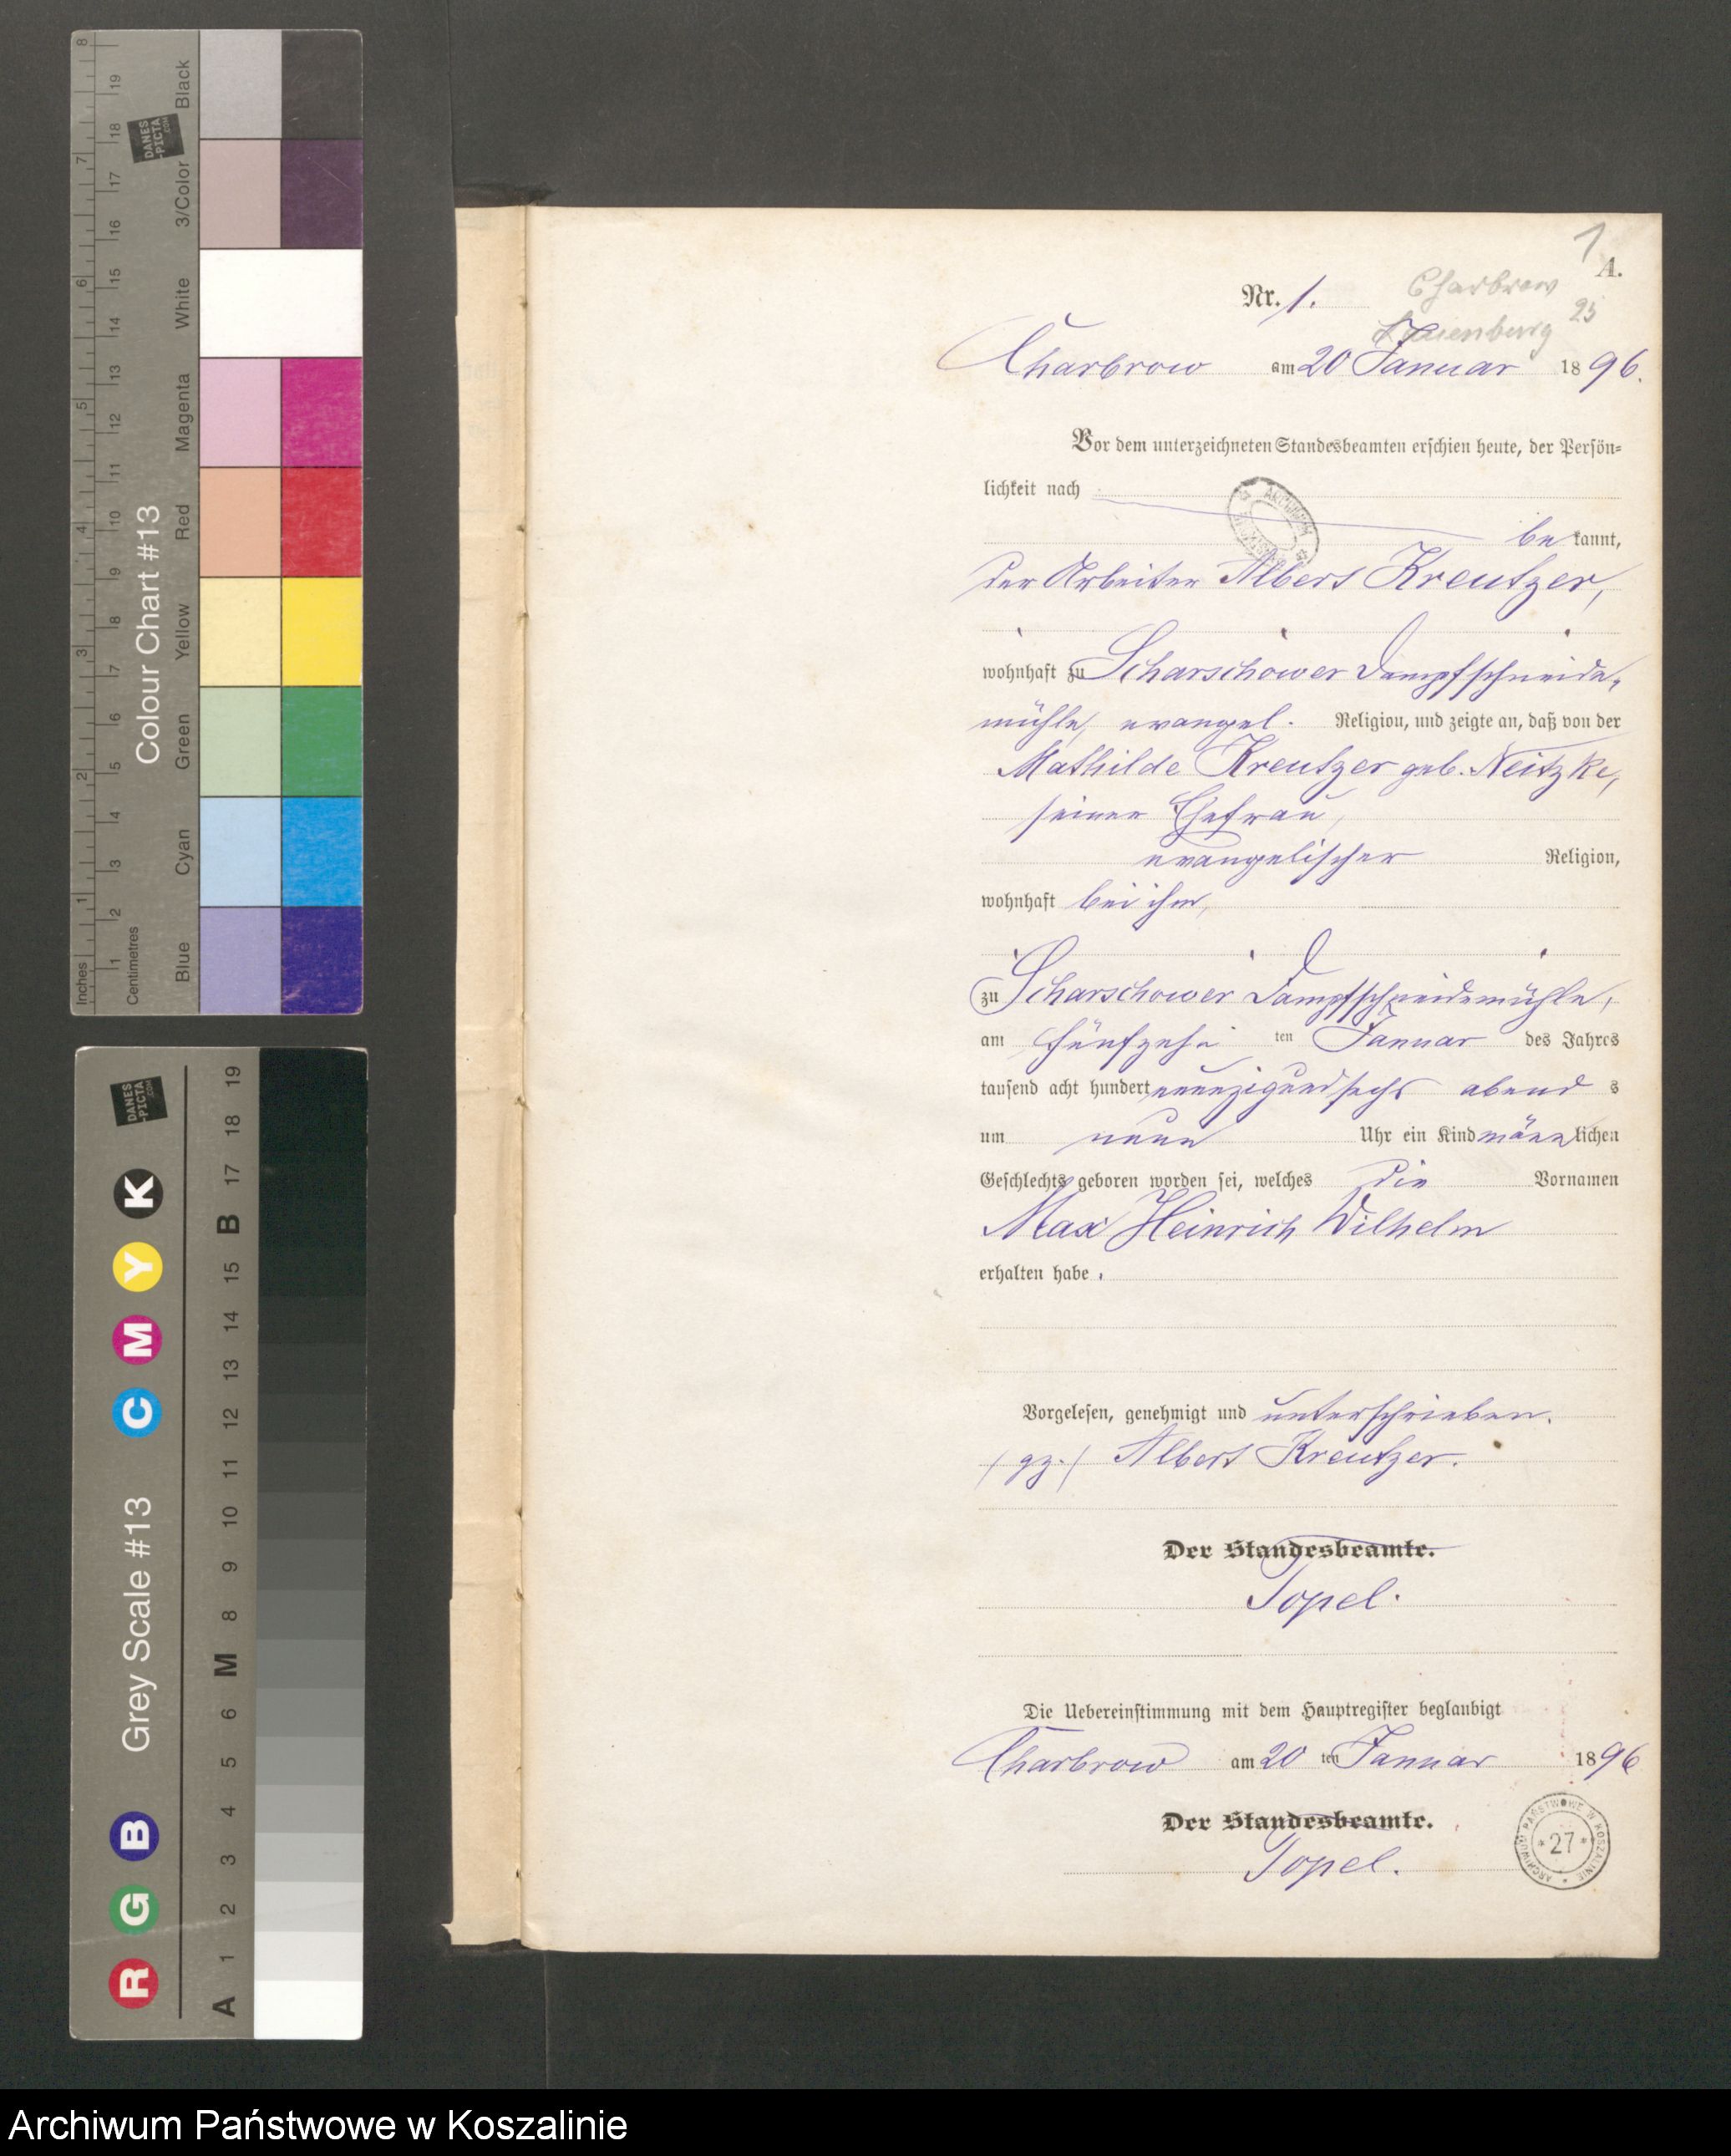 1
A.
Nr. 1.
Charbrow
Lauenburg 25
Charbrow am 20 Januar 1896.
Vor dem unterzeichneten Standesbeamten erschien heute, der Persön=
lichkeit nach
bekannt,
der Arbeiter Albert Kreutzer,
wohnhaft zu Scharschower Dampfschneide=
mühle, evangel. Religion, und zeigte an, daß von der
Mathilde Kreutzer geb. Neitzke,
seiner Ehefrau,
evangelischer Religion,
wohnhaft bei ihm,
zu Scharschower Dampfschneidemühle,
am fünfzehn ten Januar des Jahres
tausend acht hundert neunzigundsechs abends
um neun Uhr ein Kind männlichen
Geschlechts geboren worden sei, welches die Vornamen
Max Heinrich Wilhelm
erhalten habe.
Vorgelesen, genehmigt und unterschrieben.
(gz.) Albert Kreutzer.
Der Standesbeamte.
Topel.
Die Uebereinstimmung mit dem Hauptregister beglaubigt
Charbrow am 20 ten Januar 1896
Der Standesbeamte.
Topel.
ARCHIWUM PAŃSTWOWE W KOSZALINIE
* 27 *
Colour Chart #13
Inches 1 2 3 4 5 6 7 8
Centimetres 1 2 3 4 5 6 7 8 9 10 11 12 13 14 15 16 17 18 19
Blue Cyan Green Yellow Red Magenta White 3/Color Black
DANES
-PICTA
.COM
Grey Scale #13
R G B C M Y K
A 1 2 3 4 5 6 M 8 9 10 11 12 13 14 15 B 17 18 19
DANES
-PICTA
.COM
Archiwum Państwowe w Koszalinie